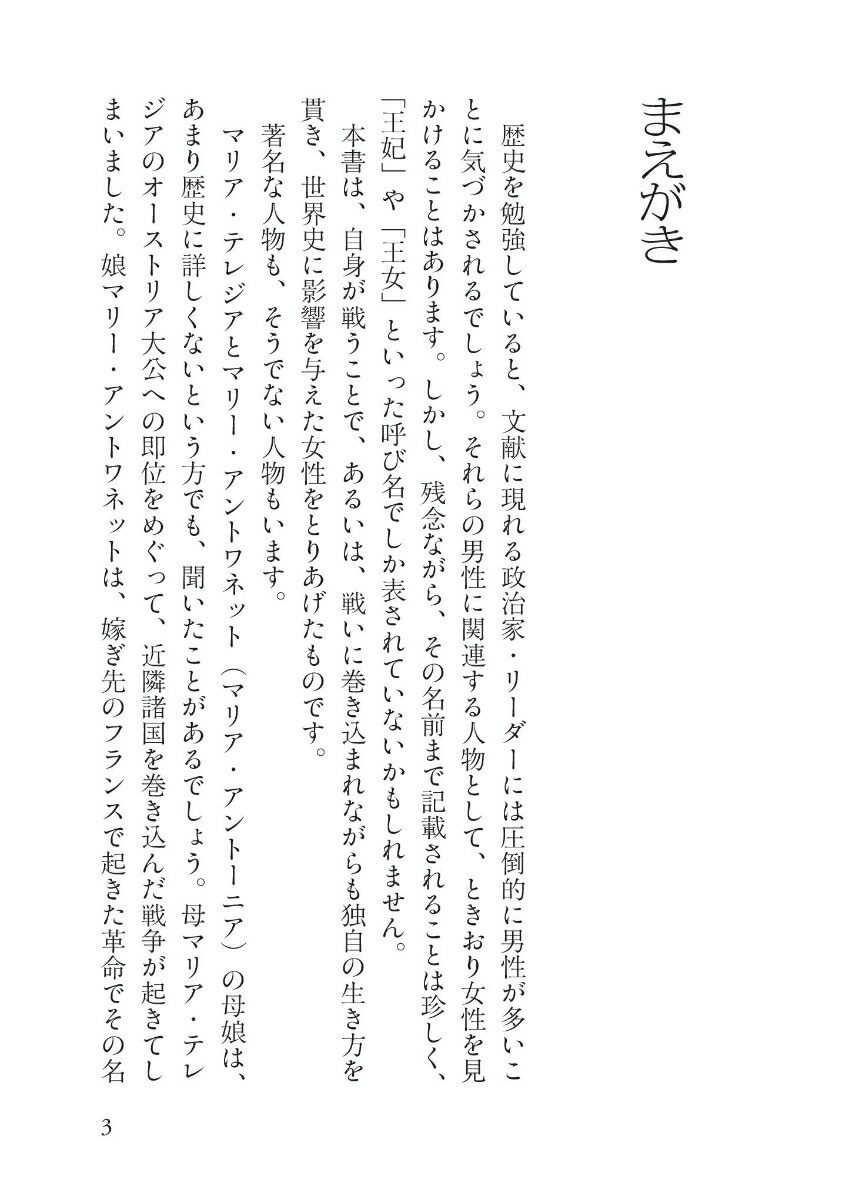 まえがき
歴史を勉強していると、文献に現れる政治家・リーダーには圧倒的に男性が多いこ
とに気づかされるでしょう。それらの男性に関連する人物として、ときおり女性を見
かけることはあります。しかし、残念ながら、その名前まで記載されることは珍しく、
「王妃」や「王女」といった呼び名でしか表されていないかもしれません。
本書は、自身が戦うことで、あるいは、戦いに巻き込まれながらも独自の生き方を
貫き、世界史に影響を与えた女性をとりあげたものです。
著名な人物も、そうでない人物もいます。
マリア・テレジアとマリー・アントワネット（マリア・アントーニア）の母娘は、
あまり歴史に詳しくないという方でも、聞いたことがあるでしょう。母マリア・テレ
ジアのオーストリア大公への即位をめぐって、近隣諸国を巻き込んだ戦争が起きてし
まいました。娘マリー・アントワネットは、嫁ぎ先のフランスで起きた革命でその名
3